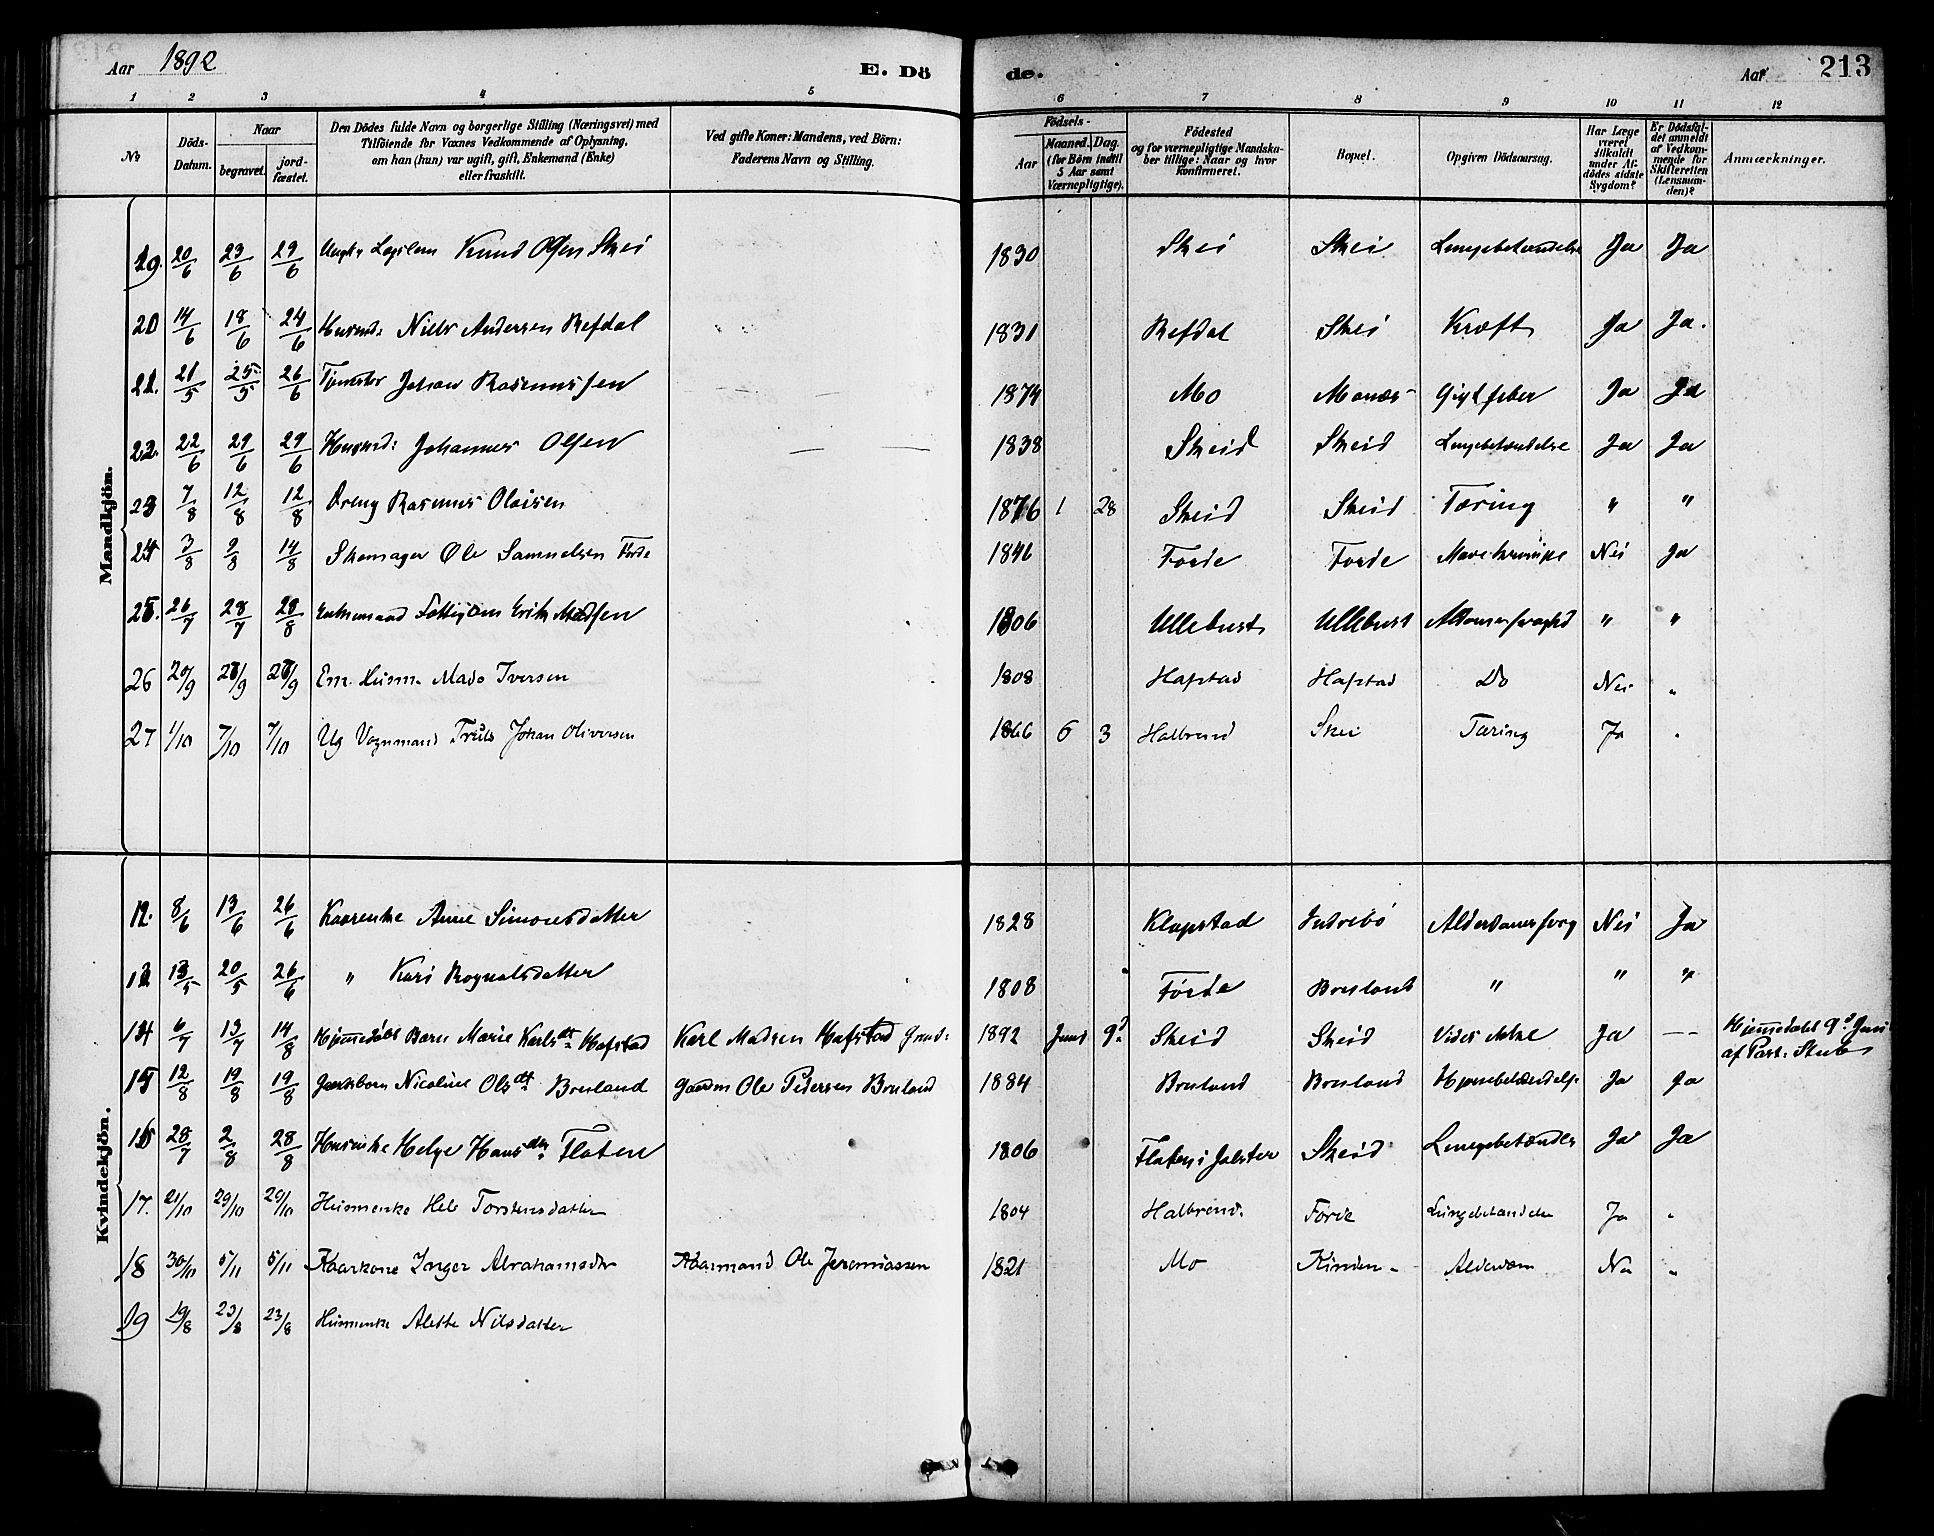 Aar 1892 E. Dö de. Aar 213
1 2 3 4 5 6 7 8 9 10 11 12
No
Döds-Datum.
Naar
begravet.
jord-fæstet.
Den Dödes fulde Navn og borgerlige Stilling (Næringsvei) med
Tilföiende for Voxnes Vedkommende af Oplysning,
om han (hun) var ugift, gift, Enkemand (Enke)
eller fraskilt.
Ved gifte Koner: Mandens, ved Börn:
Faderens Navn og Stilling.
Födsels-
Aar
Maaned. Dag.
(for Börn indtil
5 Aar samt
Værnepligtige).
Födested
og for værnepligtige Mandska-
ber tillige: Naar og hvor
konfirmeret.
Bopæl.
Opgiven Dödsaarsag.
Har Læge
været
tilkaldt
under Af-
dödes sidste
Sygdom?
Er Dödsfal-
det anmeldt
af Vedkom-
mende for
Skifteretten
(Lensman-
den)?
Anmærkninger.
Mandkjön.
19. 20/6 23/6 29/6 Knud Olsen Skei 1830 Skei Skei Lungebetændelse Ja Ja
20 14/6 18/6 24/6 Husmd: Niels Andersen Refdal 1831 Refdal Skei Kræft Ja Ja.
21. 21/5 25/5 26/6 Johan Rasmussen 1874 Mo Monæs Gigtfeber Ja Ja
22. 22/6 29/6 29/6 Husmd: Johannes Olsen 1838 Skeid Skeid Lungebetændelse Ja Ja
23 7/8 12/8 12/8 Dreng Rasmus Olaisen 1876 1 28 Skeid Skeid Tæring " "
24 3/8 9/8 14/8 Skomager Ole Samuelsen Förde 1846 Förde Förde Mavekrampe Nei Ja
25. 26/7 28/7 28/8 Enkemand Fattiglem Erik Madsen 1806 Ullebust Ullebust " "
26 20/9 28/9 28/9 Em. Husm. Mads Iversen 1808 Hafstad Hafstad Do Nei "
27 1/10 7/10 7/10 Ug Vognmand Truls Johan Oliversen 1866 6 3 Halbrend Skei Tæring Ja "
Kvindekjön.
12. 8/6 13/6 26/6 Kaarenke Anne Simonsdatter 1828 Klopstad Indrebö Alderdomssvag Nei Ja
13 13/5 20/5 26/6 " Kari Rognalsdatter 1808 Förde Bruland " " "
14 6/7 13/7 14/8 Hjemmedöbt Barn Marie Karlsdt Hafstad Karl Madsen Hafstad 1892 Juni 9d Skeid Skeid Ja — Hjemmedöbt 9d Juni
af Past. Stub
15 12/8 19/8 19/8 Nicoline Olsdt Bruland Gaardm Ole Pedersen Bruland 1884 Bruland Bruland Hjernebetændelse Ja Ja
16 28/7 2/8 28/8 Husenke Helge Hansdtr Flaten 1806 Flaten i Jölster Skeid Lungebetændels Ja Ja
17. 21/10 29/10 29/10 Husmenke Torstensdatter 1804 Halbrend. Förde Lungebetændelse Ja "
18 30/10 5/11 5/11 Kaarkone Inger Abrahamsdtr Kaarmand Ole Jeremiassen 1821 Mo Alderdom Nei "
19 19/8 23/8 23/8 Husmenke Alette Nilsdatter